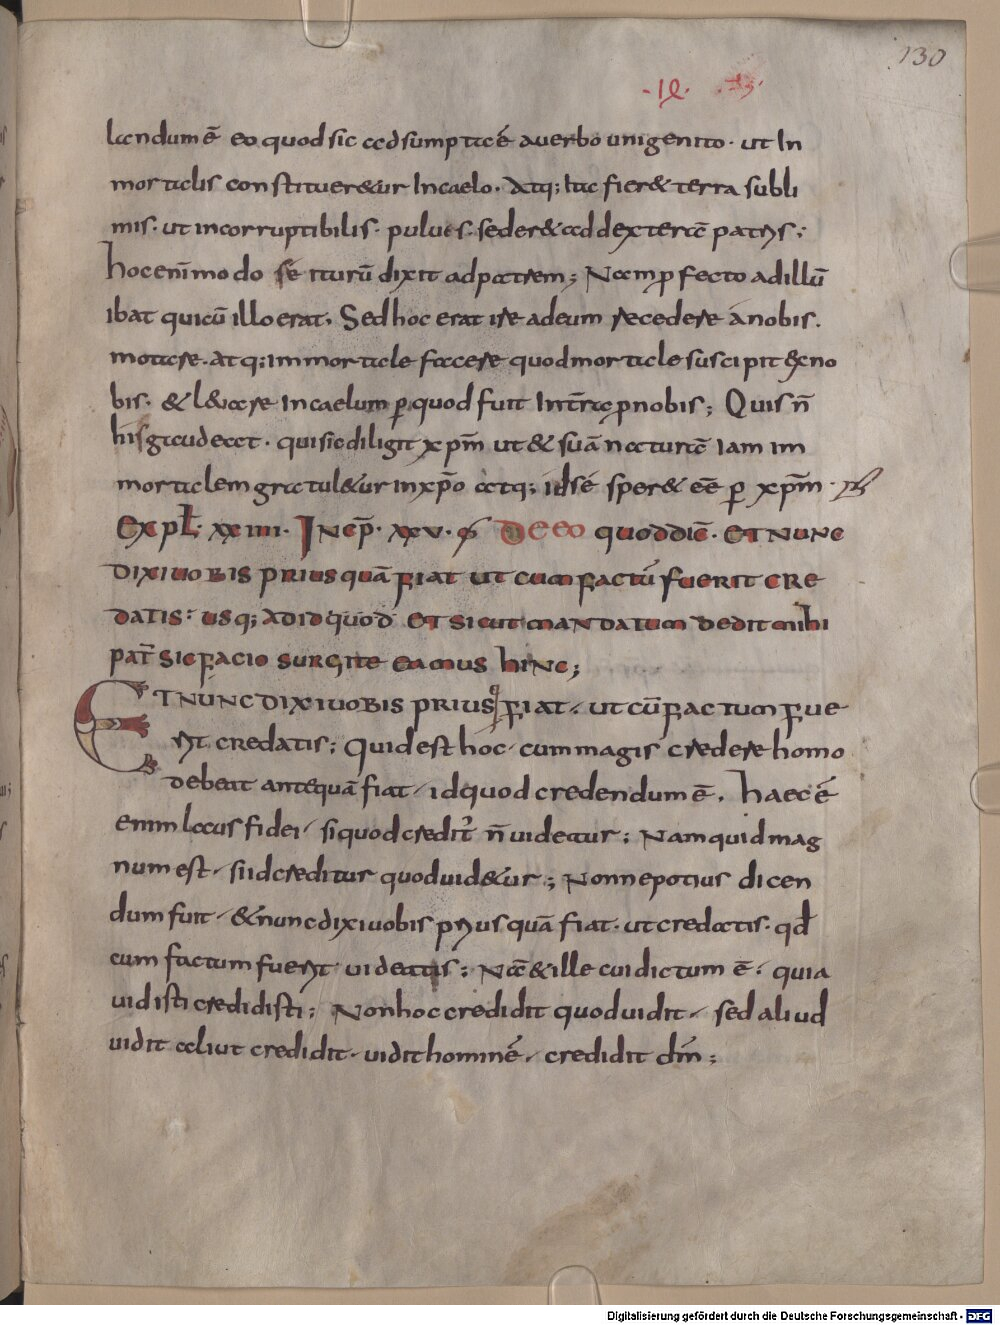 130
·IX·
landum ē eo quod sic adsumpta ē a uerbo unigenito· ut In
mortalis constitueretur In caelo· Atq; ita fieret terra subli
mis· ut incorruptibilis· puluis sederet ad dexterā patris;
hoc eni modo se iturū dixit ad patrem; Nā profecto ad illū
ibat qui cū illo erat. Sed hoc erat ire ad eum recedere a nobis.
motare· atq; immortale facere quod mortale suscipit ex no
bis· & leuare In caelum p quod fuit In tr̄a p nobis; Quis n̄
his gaudeat· qui sic diligit xp̄m ut & suā naturā iam im
mortalem gratuletur in xp̄o atq; id se speret eē p xp̄m·
Expl̄· xxiiii· Incp̄· xxv· DE EO quod diē· Et nunc
dixi uobis prius quā fiat ut cum factū fuerit cre
datis: usq; ad id quod et sicut mandatum dedit mihi
pat̄ sic facio surgite eamus hinc;
Et nunc dixi uobis prius q fiat· ut cū factum fue
rit credatis; Quid est hoc· cum magis credere homo
debeat antequā fiat· id quod credendum ē. haec ē
enim laus fidei· si quod credit̄ n̄ uideatur; Nam quid mag
num est· si id creditur quod uidetur; Nonne potius dicen
dum fuit· & nunc dixi uobis prius quā fiat· ut credatis· qd̄
cum factum fuerit uideatis; Nā & ille cui dictum ē· quia
uidisti credidisti; Non hoc credidit quod uidit· sed aliud
uidit aliut credidit· uidit hominē· credidit dm̄;
Digitalisierung gefördert durch die Deutsche Forschungsgemeinschaft - DFG